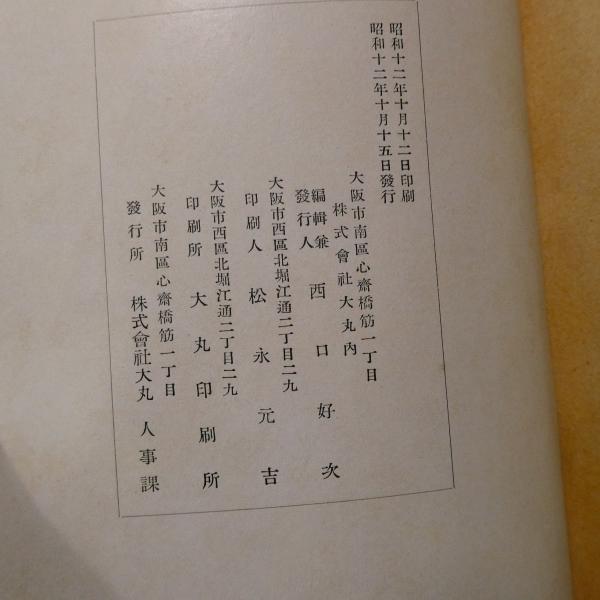 昭和十二年十月十二日印刷
昭和十二年十月十五日發行
大阪市南區心齋橋筋一丁目
株式會社大丸內
編輯兼
發行人 西口好次
大阪市西區北堀江通二丁目二九
印刷人 松永元吉
大阪市西區北堀江通二丁目二九
印刷所 大丸印刷所
大阪市南區心齋橋筋一丁目
發行所 株式會社大丸 人事課